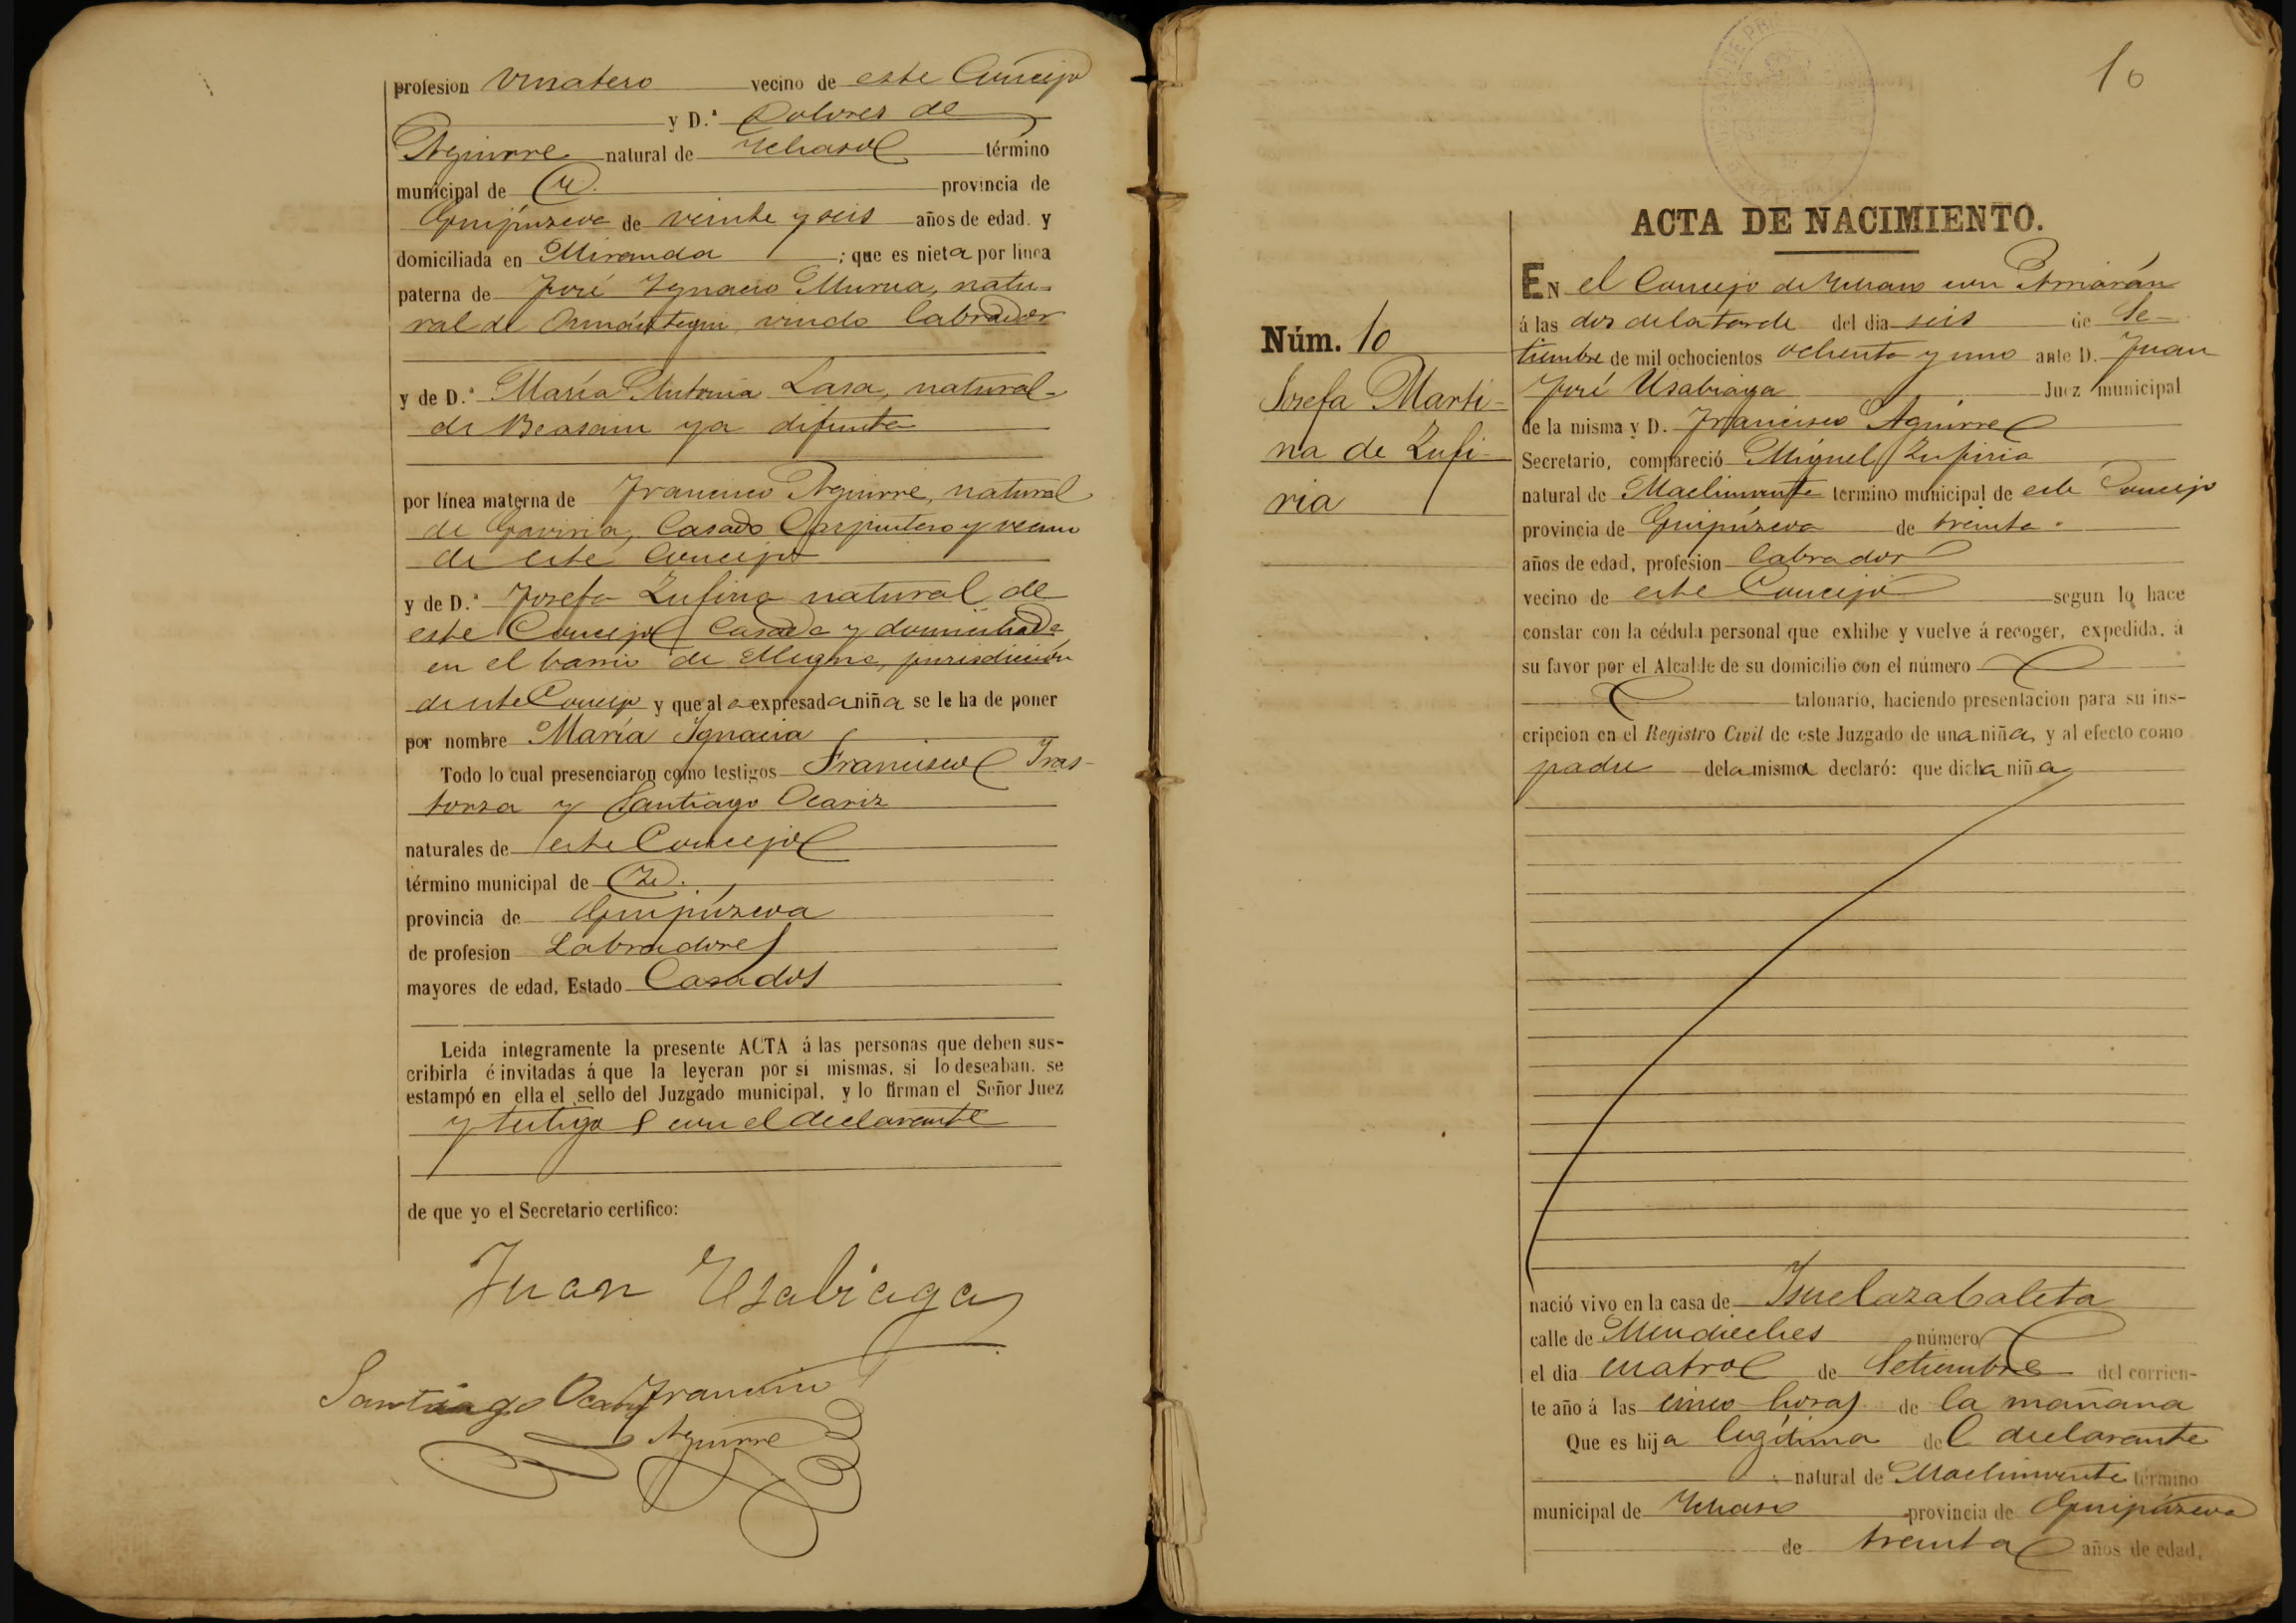 profesion vinatero vecino de este Concejo
y D.ª Dolores de
Aguirre natural de Ichaso término
municipal de id. provincia de
Guipúzcoa de veinte y seis años de edad. y
domiciliada en Miranda ; que es nieta por linea
paterna de José Ygnacio Murua, natu-
ral de Ormáiztegui viudo labrador
y de D.ª María Antonia Lasa, natural
de Beasain ya difunta
por línea materna de Francisco Aguirre, natural
de Gaviria, Casado Carpintero y vecino
de este Concejo
y de D.ª Josefa Zufiria natural de
este Concejo Casada y domiciliada
en el barrio de jurisdicción
de este Concejo y que al a expresada niña se le ha de poner
por nombre María Ignacia
Todo lo cual presenciaron como testigos Francisco Iras-
torza y Santiago Ocariz
naturales de este Concejo
término municipal de id.
provincia de Guipúzcoa
de profesion Labradores
mayores de edad, Estado Casados
Leida integramente la presente ACTA á las personas que deben sus-
cribirla é invitadas á que la leyeran por si mismas, si lo deseaban, se
estampó en ella el sello del Juzgado municipal, y lo firman el Señor Juez
y testigos con el declarante
de que yo el Secretario certifico:
Juan Usabiaga
Santiago Ocariz Francisco
Aguirre
10
ACTA DE NACIMIENTO.
Núm. 10
Josefa Marti-
na de Zufi-
ria
EN el Concejo de Ichaso con Arriarán
á las dos de la tarde del dia seis de Se-
tiembre de mil ochocientos ochenta y uno ante D. Juan
José Usabiaga Juez municipal
de la misma y D. Francisco Aguirre
Secretario, compareció Miguel Zufiria
natural de termino municipal de este Concejo
provincia de Guipúzcoa de treinta
años de edad, profesion labrador
vecino de este Concejo segun lo hace
constar con la cédula personal que exhibe y vuelve á recoger, expedida, á
su favor por el Alcalde de su domicilio con el número
talonario, haciendo presentacion para su ins-
cripcion en el Registro Civil de este Juzgado de una niña, y al efecto como
padre de la misma declaró: que dicha niña
nació vivo en la casa de
calle de número
el dia cuatro de Setiembre del corrien-
te año á las cinco horas de la mañana
Que es hija legitima del declarante
natural de término
municipal de Ichaso provincia de Guipúzcoa
de treinta años de edad,